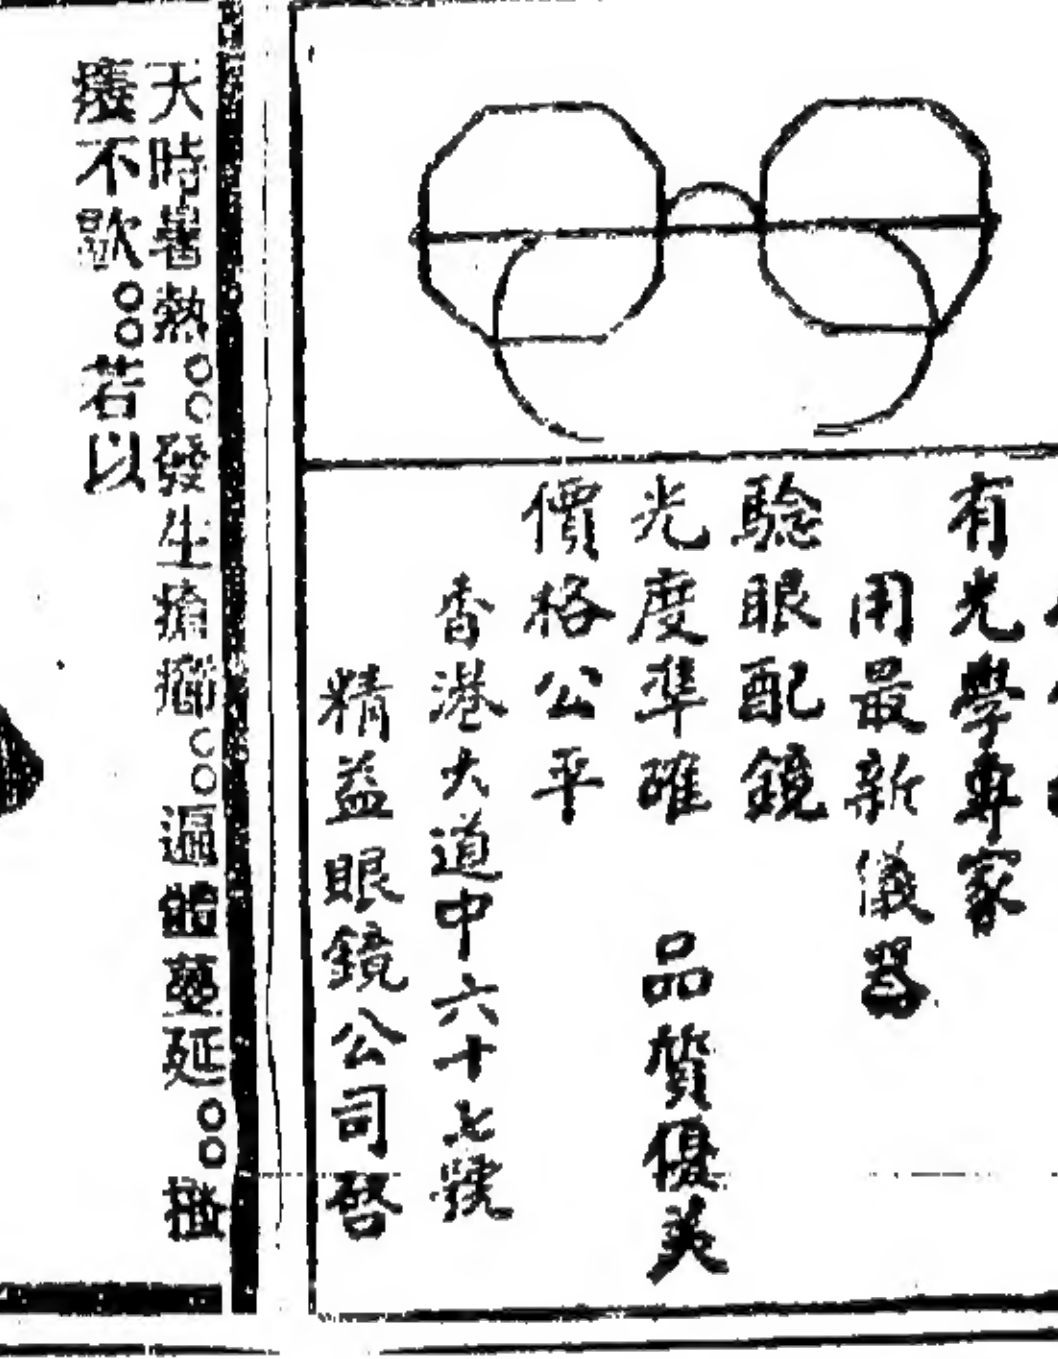 有光學專家
用最新儀器
驗眼配鏡
光度準確 品質優美
價格公平
香港大道中六十七號
精益眼鏡公司啓
天時暑熱。。發生瘡癤。。遍體蔓延。。搔
癢不歇。。若以